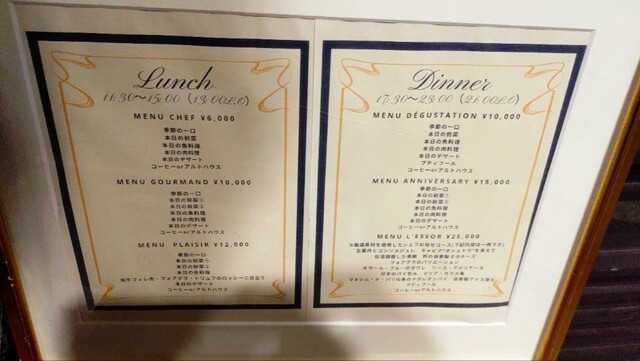 Lunch
11:30~15:00 (13:00LO)
MENU CHEF ¥6,000
季節の一口
本日の前菜
本日の魚料理
本日の肉料理
本日のデザート
コーヒーorアルトハウス
MENU GOURMAND ¥10,000
季節の一口
本日の前菜①
本日の前菜②
本日の魚料理
本日の肉料理
本日のデザート
コーヒーorアルトハウス
MENU PLAISIR ¥12,000
季節の一口
本日の前菜①
本日の前菜②
本日の魚料理
和牛フィレ肉・フォアグラ・トリュフのロッシーニ仕立て
本日のデザート
コーヒーorアルトハウス
Dinner
17:30~23:00 (21:00LO)
MENU DÉGUSTATION ¥10,000
季節の一口
本日の前菜
本日の魚料理
本日の肉料理
本日のデザート
プティフール
コーヒーorアルトハウス
MENU ANNIVERSARY ¥15,000
季節の一口
本日の前菜①
本日の前菜②
本日の魚料理
本日の肉料理
本日のデザート
コーヒーorアルトハウス
MENU L'ESSOR ¥25,000
※厳選素材を使用したシェフお任せコース(下記内容は一例です)
フォアグラのバリエーション
オマール・ブルーのポワレ ソース・アメリケーヌ
プティフール
コーヒーorアルトハウス